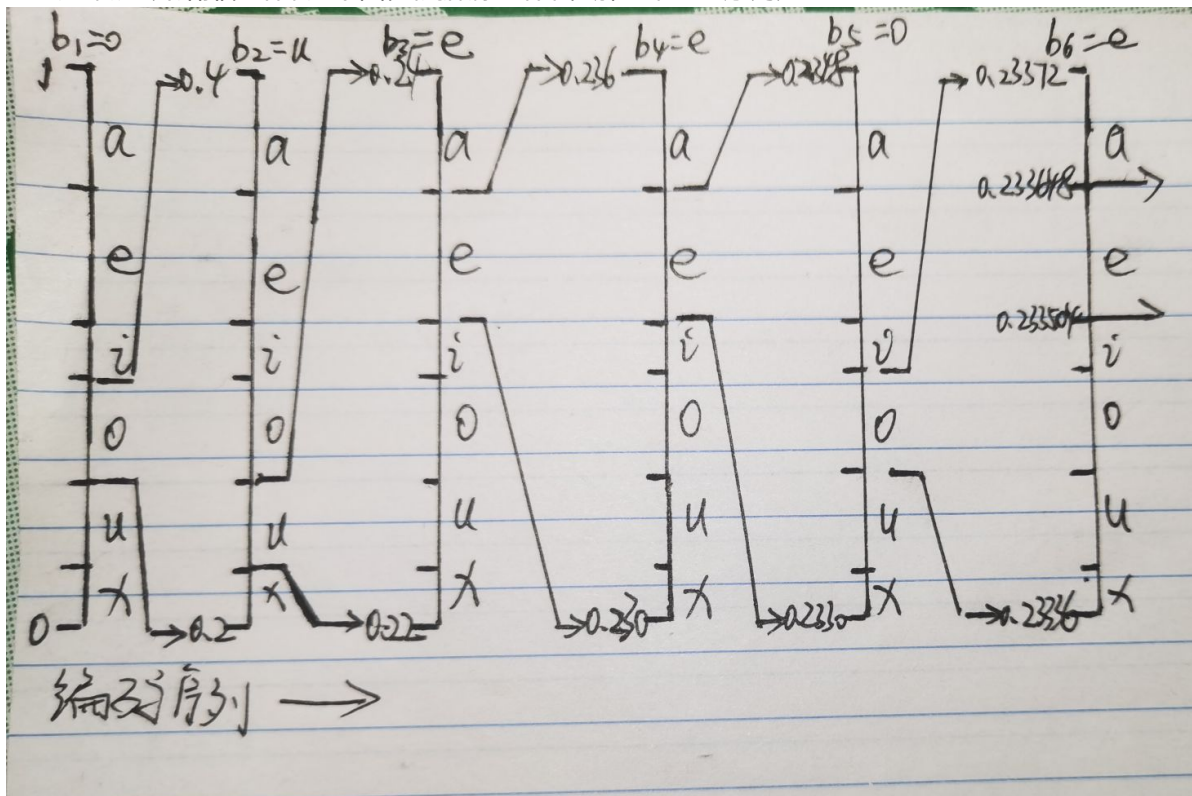 b1=0 b2=u b3=e b4=e b5=0 b6=e
1 →0.4 →0.24 →0.236 →0.2348 →0.23372
a a a a a a
0.233648
e e e e e e
0.233504
i i i i i i
o o o o o o
u u u u u u
x x x x x x
0 →0.2 →0.22 →0.230 →0.2330 →0.2336
编码序列 →